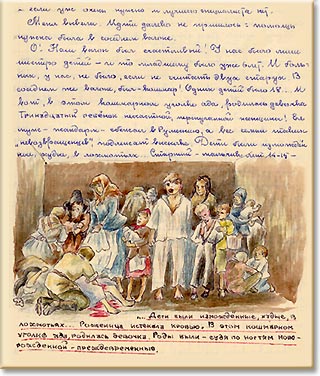 – если уже очень нужно – лучшего специалиста
Меня вывели. Идти далеко не пришлось: помощь
нужна была в соседнем вагоне.
О! Наш вагон был счастливый! У нас было лишь
шестеро детей – и то младшему было уже 6 лет. И боль-
ных у нас не было, если не считать двух старух. В
соседнем же вагоне был – кошмар! Одних детей было 18... И
вот, в этом кошмарном уголке ада, родилась девочка.
Тринадцатый ребёнок несчастной, перепуганной женщины! Её
муж – жандарм – сбежал в Румынию, а вся семья
„невозвращенцев" подлежит высылке. Дети были измождён-
ные, худые, в лохмотьях. Старший – мальчик лет 14-15 –
... Дети были измождённые, худые, в
лохмотьях... Роженица истекала кровью. В этом кошмарном
уголке ада, родилась девочка. Роды были – судя по ногтям ново-
рождённой – преждевременные.